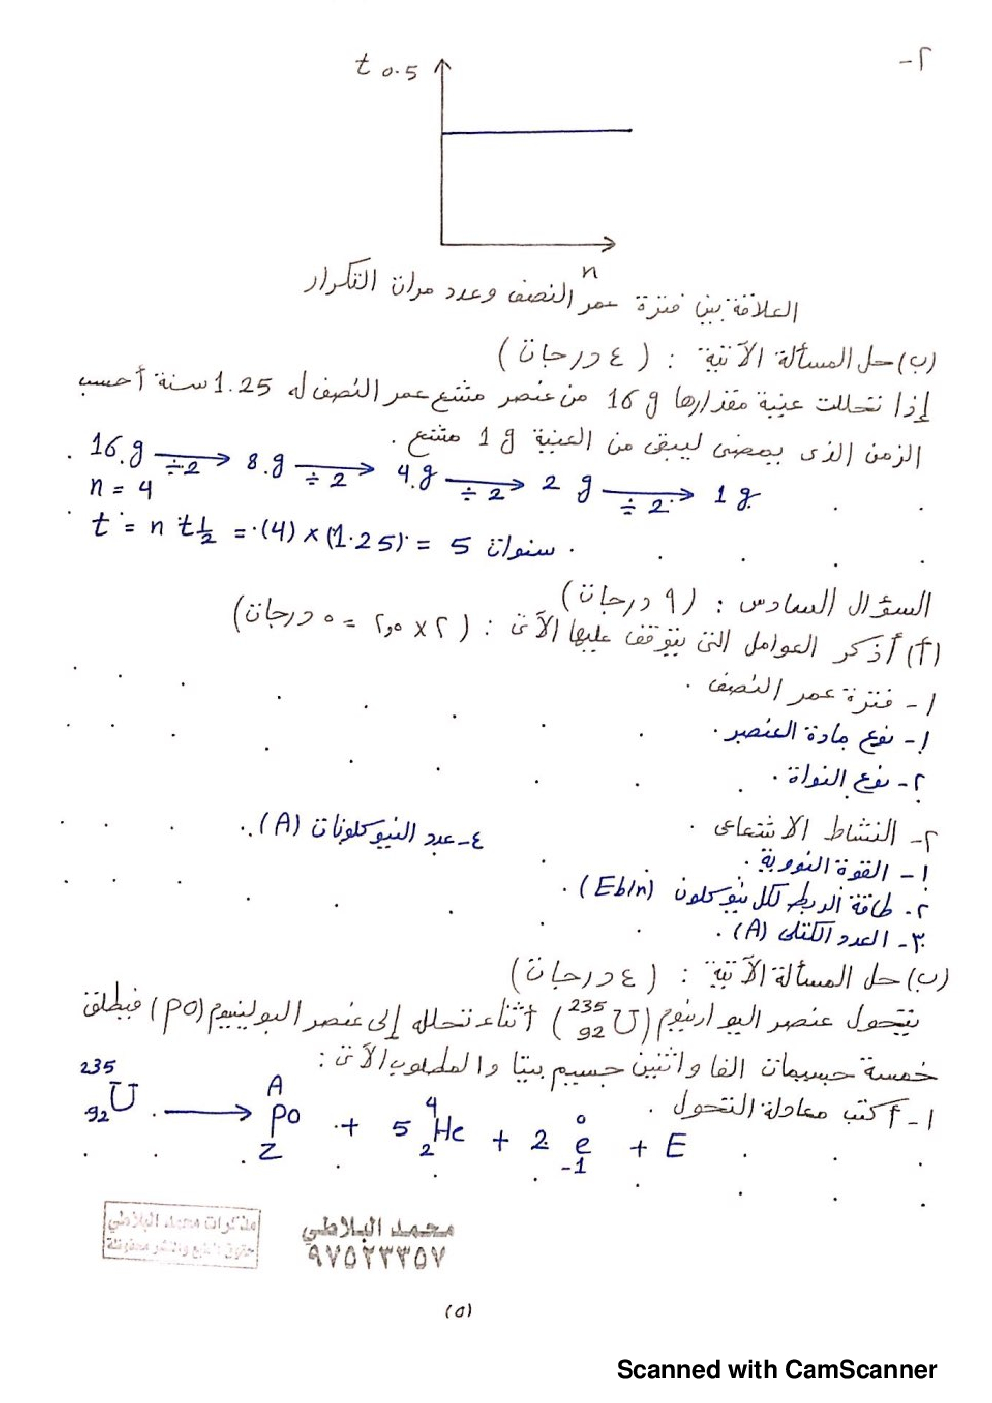 ٢-
t 0.5
n
العلاقة بين فترة عمر النصف وعدد مرات التكرار
(ب) حل المسألة الآتية : ( ٤ درجات )
إذا تحللت عينة مقدارها 16 g من عنصر مشع عمر النصف له 1.25 سنة أحسب
الزمن الذى يمضى ليبقى من العينة 1 g مشع .
16.g ÷2 → 8.g ÷ 2 → 4.g ÷ 2 → 2 g ÷ 2 → 1 g
n = 4
t = n t½ = (4) × (1.25) = 5 سنوات .
السؤال السادس : ( ٩ درجات )
(أ) أذكر العوامل التى يتوقف عليها الآتى : ( ٢ × ٢,٥ = ٥ درجات )
١- فترة عمر النصف .
١- نوع مادة العنصر .
٢- نوع النواة .
٢- النشاط الاشعاعى .
١- القوة النووية .
٢- طاقة الربط لكل نيوكلون (Eb/n) .
٣- العدد الكتلى (A) .
٤- عدد النيوكلونات (A) .
(ب) حل المسألة الآتية : ( ٤ درجات )
يتحول عنصر اليورانيوم (²³⁵₉₂U) أثناء تحلله إلى عنصر البولينيوم (po) فيطلق
خمسة جسيمات الفا واثنين جسيم بيتا والمطلوب الآتى :
١- أكتب معادلة التحول .
²³⁵₉₂U → ᴬ_Z po + 5 ⁴₂He + 2 ⁰₋₁e + E
مذكرات محمد البلاطي
حقوق الطبع والنشر محفوظة
محمد البلاطي
٩٧٥٢٣٣٥٧
(٥)
Scanned with CamScanner